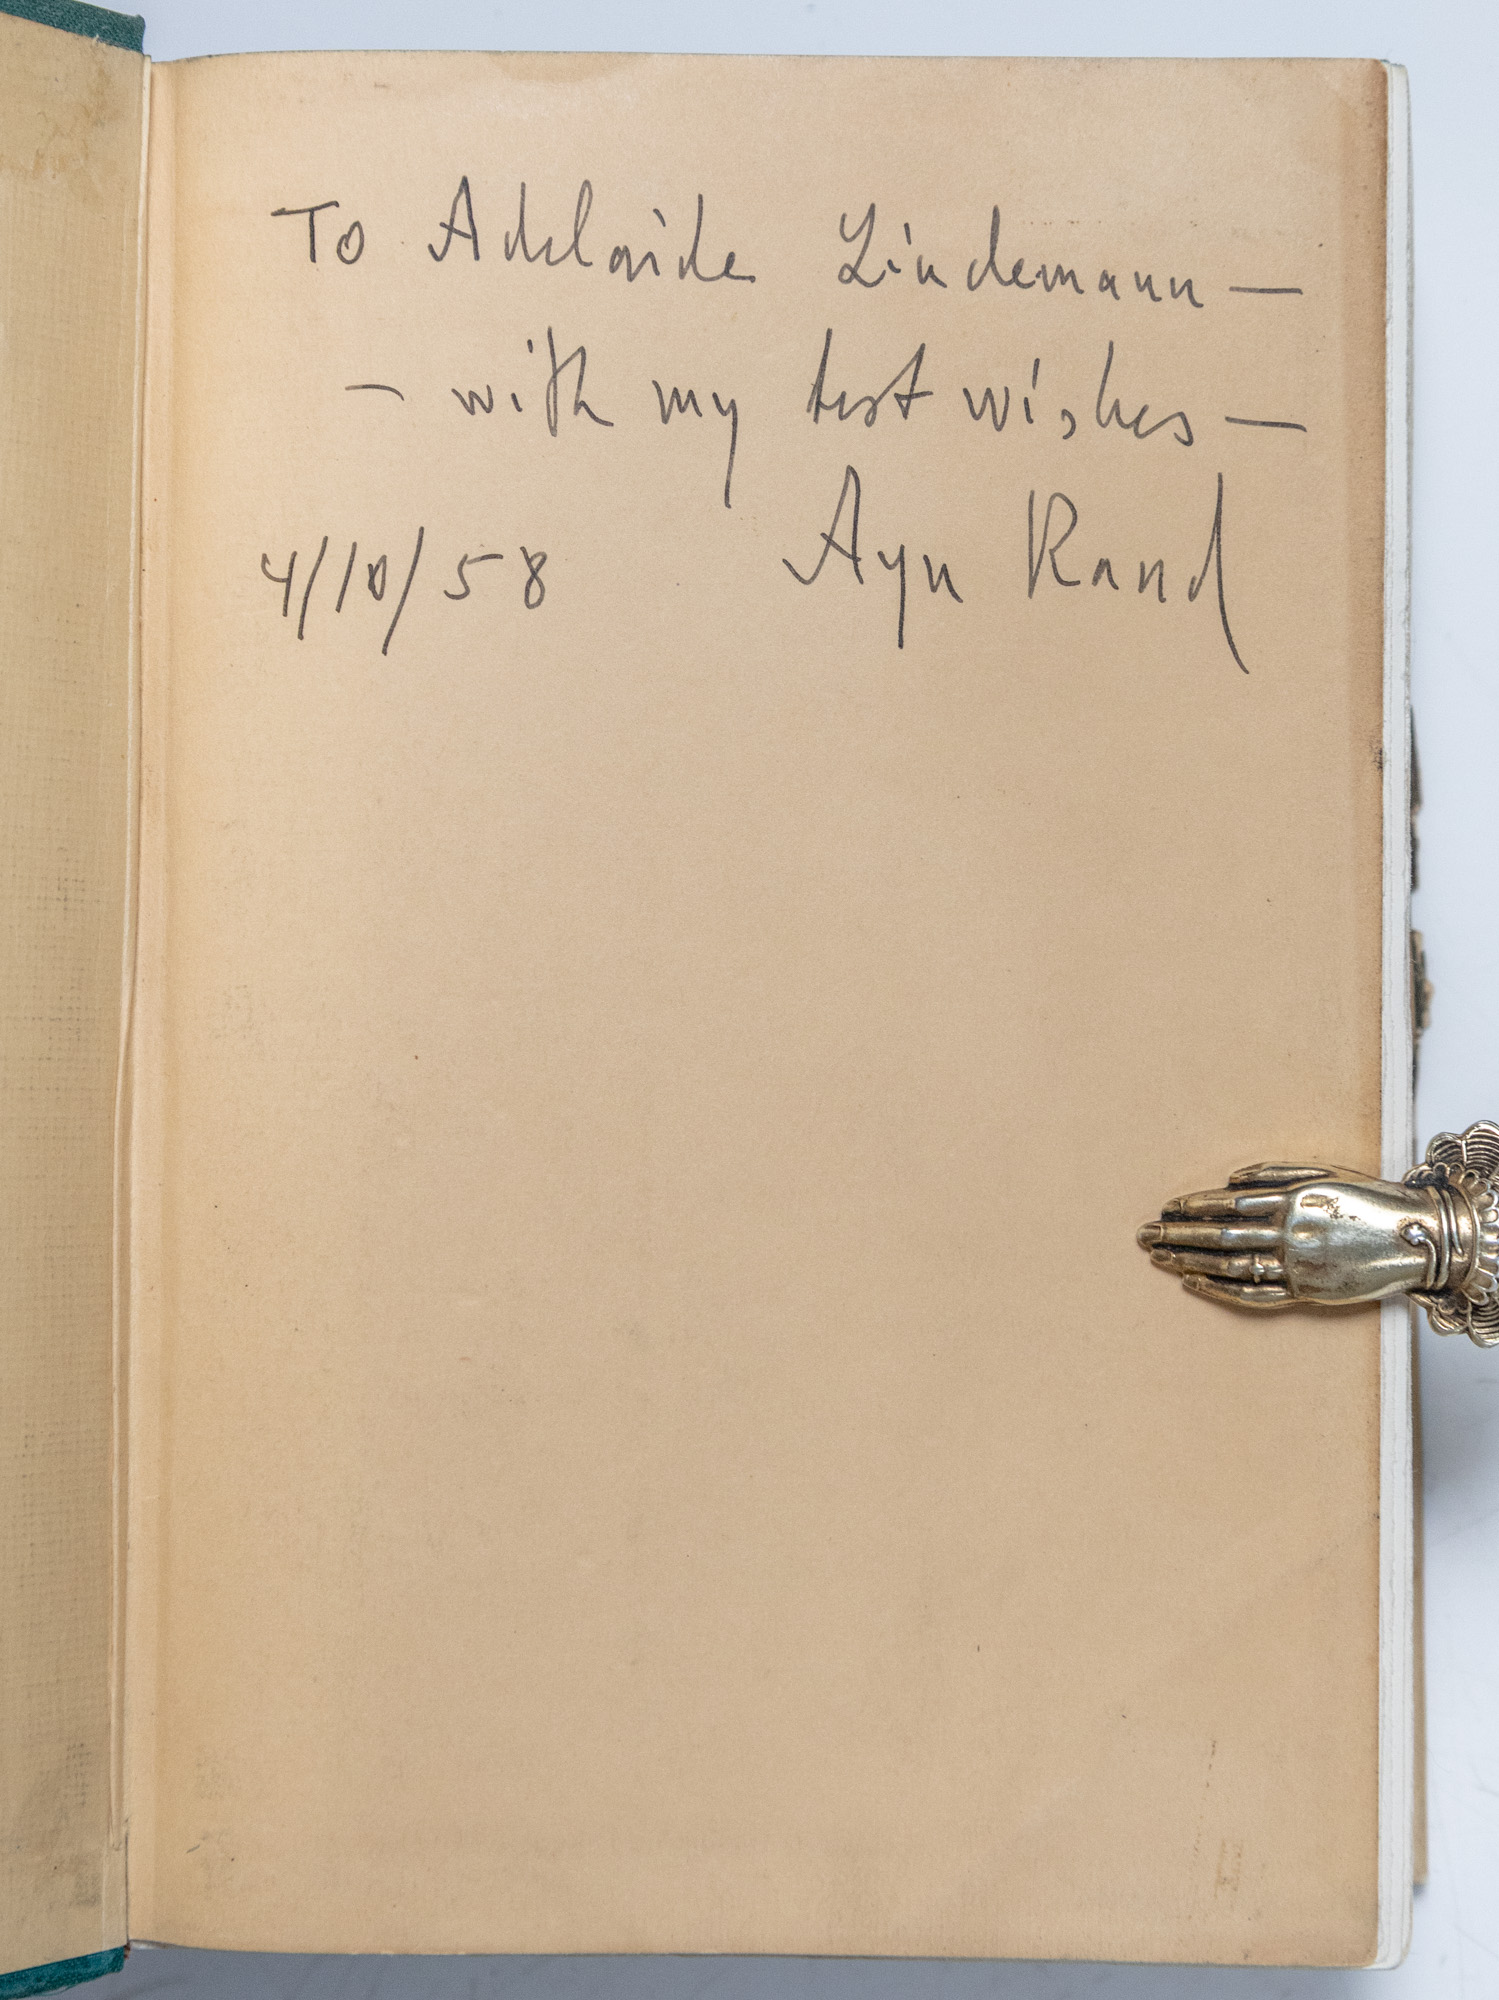 To Adelaide Lindemann —
— with my best wishes —
4/10/58 Ayn Rand